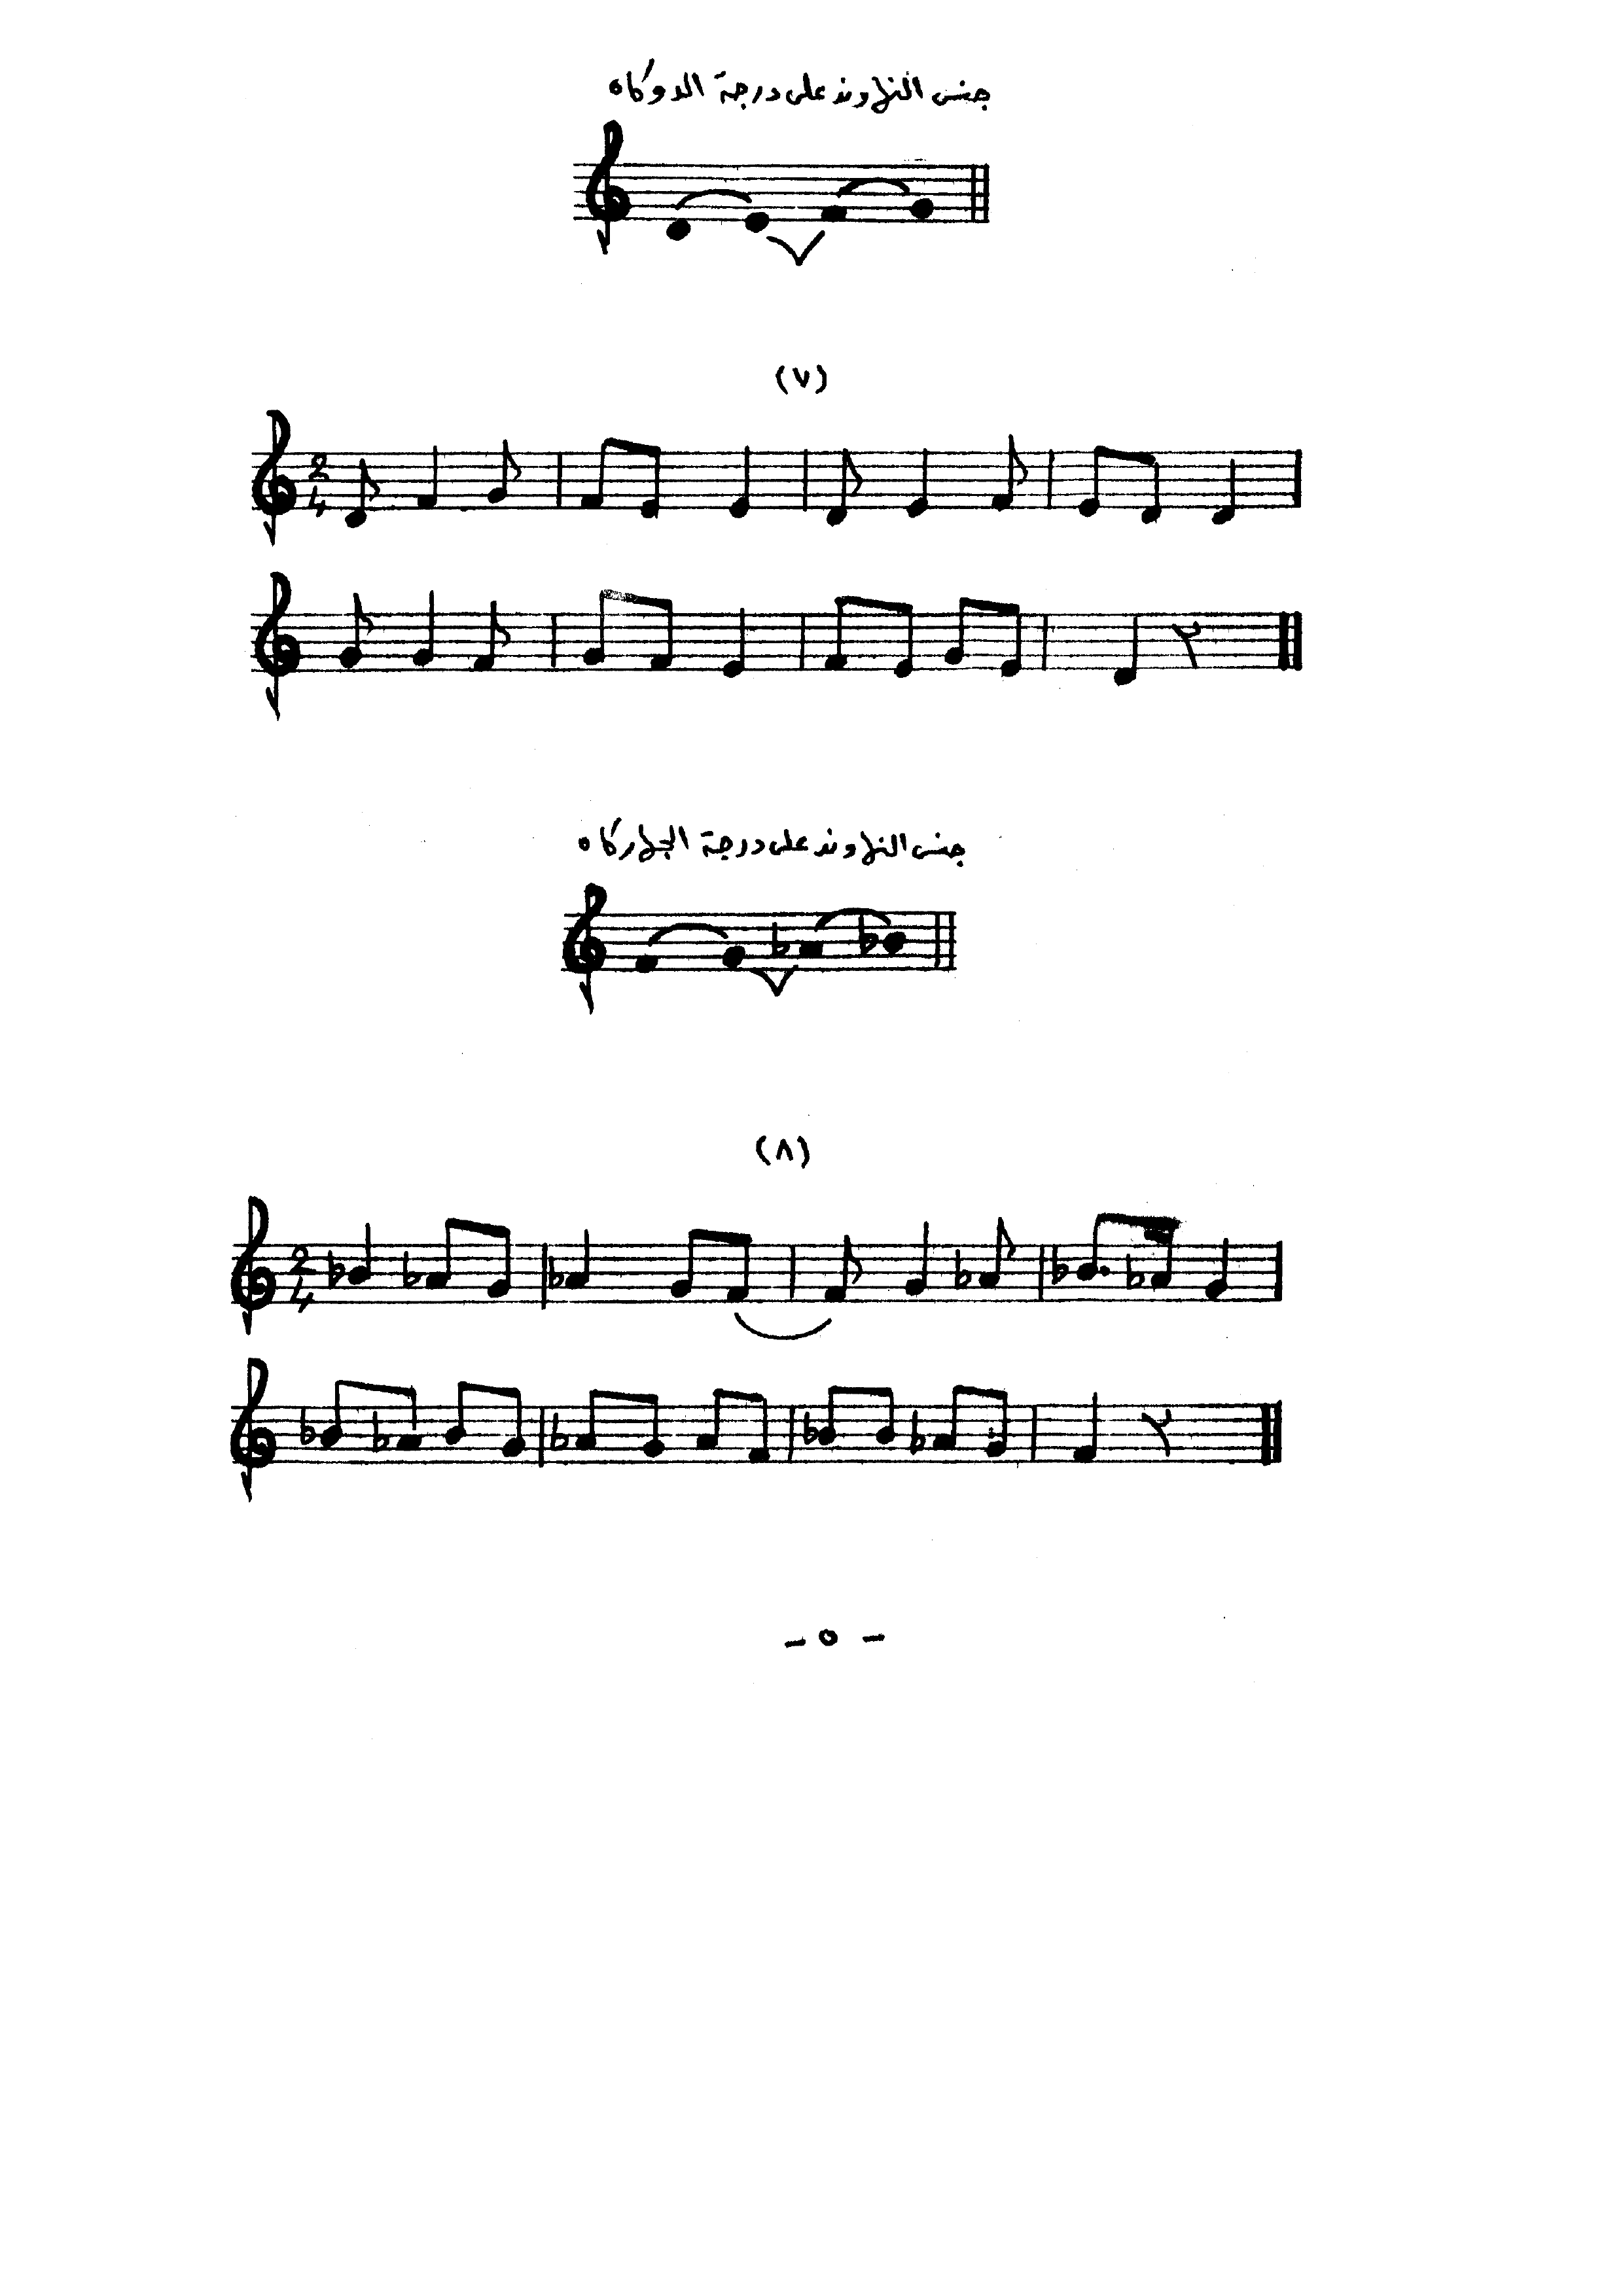 جنس النهاوند على درجة الدوكاه
(٧)
2
4
جنس النهاوند على درجة الجهاركاه
(٨)
2
4
- ٥ -